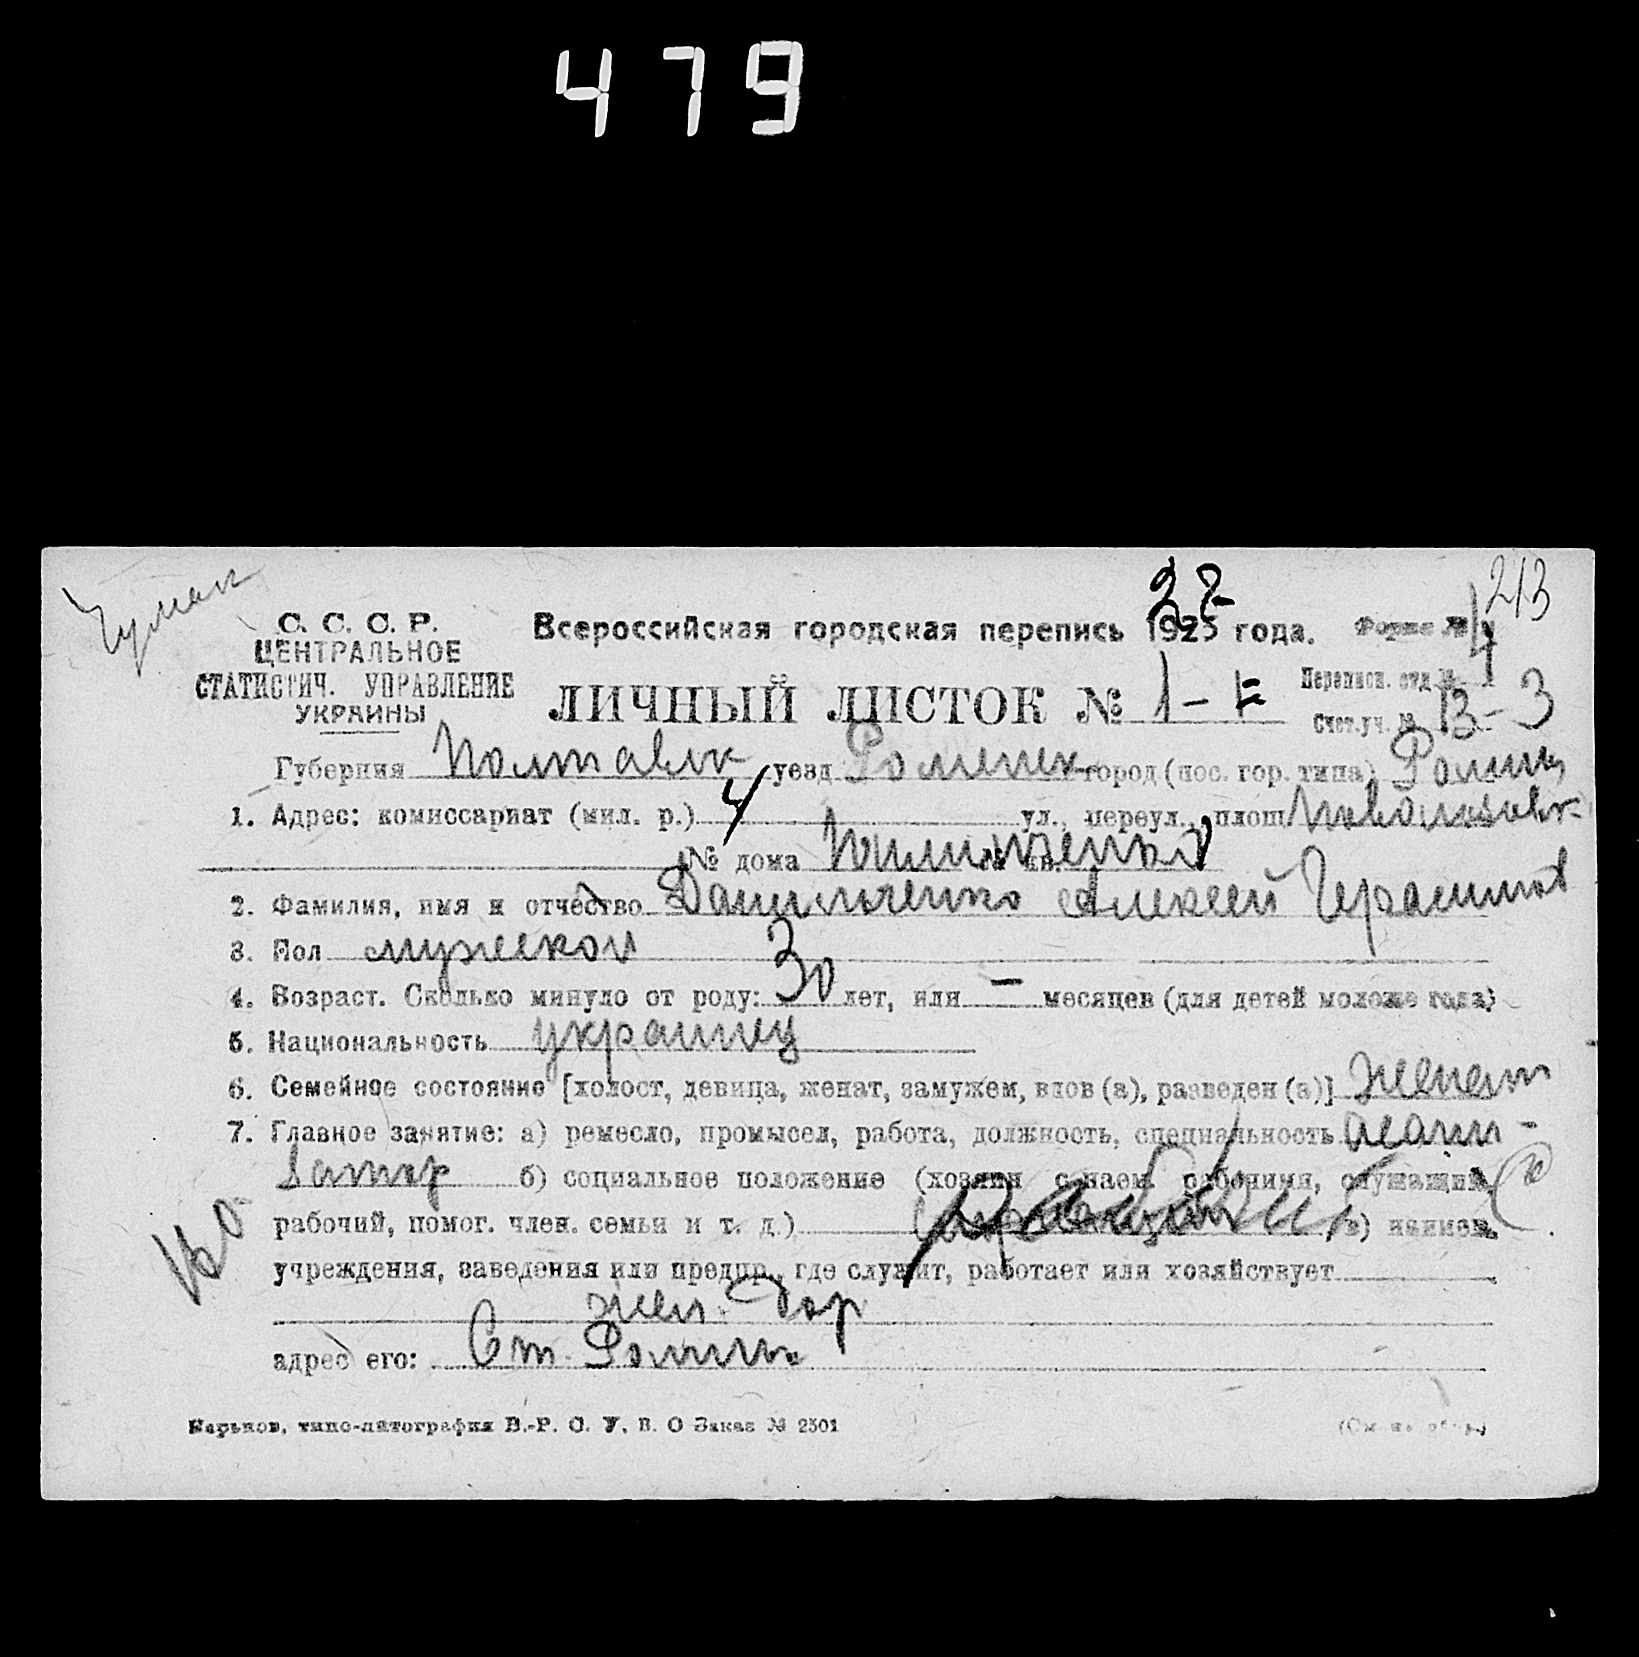 479
Чумак
213
С. С. С. Р.
ЦЕНТРАЛЬНОЕ
СТАТИСТИЧ. УПРАВЛЕНИЕ
УКРАИНЫ
Всероссийская городская перепись 1925 года.
Форма №
ЛИЧНЫЙ ЛИСТОК № 1-
Перепион. отд №
Счет.уч. № 13-3
Губерния Полтавск уезд Роменск город (пос. гор. типа) Ромны
1. Адрес: комиссариат (мил. р.) 4 ул., переул., площ
№ дома кв.
2. Фамилия, имя и отчество Данильченко Алексей Герасимов
3. Пол мужеской
4. Возраст. Сколько минуло от роду: 30 лет, или — месяцев (для детей моложе года)
5. Национальность украинец
6. Семейное состояние [холост, девица, женат, замужем, вдов (а), разведен (а)] женат
7. Главное занятие: а) ремесло, промысел, работа, должность, специальность
б) социальное положение (хозяин с наем. рабочими, служащий,
рабочий, помог. член. семьи и т. д.) в) наимен.
учреждения, заведения или предпр., где служит, работает или хозяйствует
жел. дор
адрес его: Ст. Ромны
Харьков, типо-литография В.-Р. С. У. В. О Заказ № 2501
(См. на обор.)